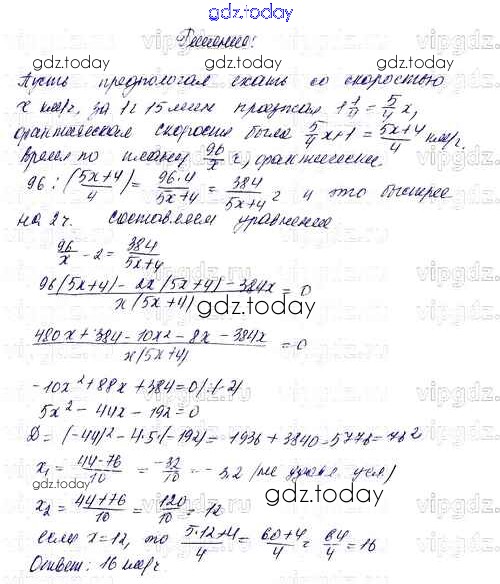 gdz.today
Решение:
gdz.today
Пусть предпологал ехать со скоростью
x км/ч, за 1ч 15 мин проезжал 1 1/4 = 5/4 x,
фактическая скорость была 5/4 x+1 = (5x+4)/4 км/ч.
Время по плану 96/x ч, фактическое
96 : ((5x+4)/4) = (96·4)/(5x+4) = 384/(5x+4) ч и это быстрее
на 2ч. Составляем уравнение
96/x - 2 = 384/(5x+4)
(96(5x+4) - 2x(5x+4) - 384x)/(x(5x+4)) = 0
gdz.today
(480x + 384 - 10x² - 8x - 384x)/(x(5x+4)) = 0
-10x² + 88x + 384 = 0 /:(-2)
5x² - 44x - 192 = 0
D = (-44)² - 4·5·(-192) = 1936 + 3840 = 5776 = 76²
x₁ = (44-76)/10 = -32/10 = -3,2 (не удовл. усл)
gdz.today
x₂ = (44+76)/10 = 120/10 = 12
если x = 12, то (5·12+4)/4 = (60+4)/4 = 64/4 = 16
Ответ: 16 км/ч
gdz.today